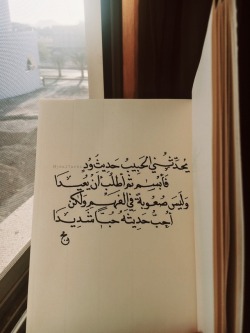 يحدّثني الحبيب حديث ودٍّ
فأبسم ثم أطلب أن يعيدا
وليس صعوبة في الفهم ولكن
أحبّ حديثه حُبًّا شديدا